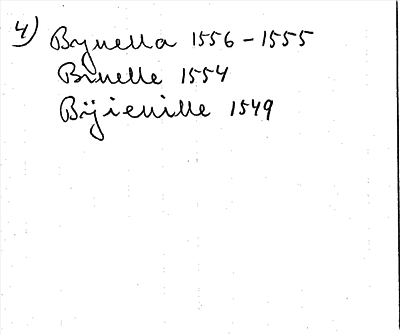 4) Bynella 1556-1555
Binelle 1554
Bÿienille 1549